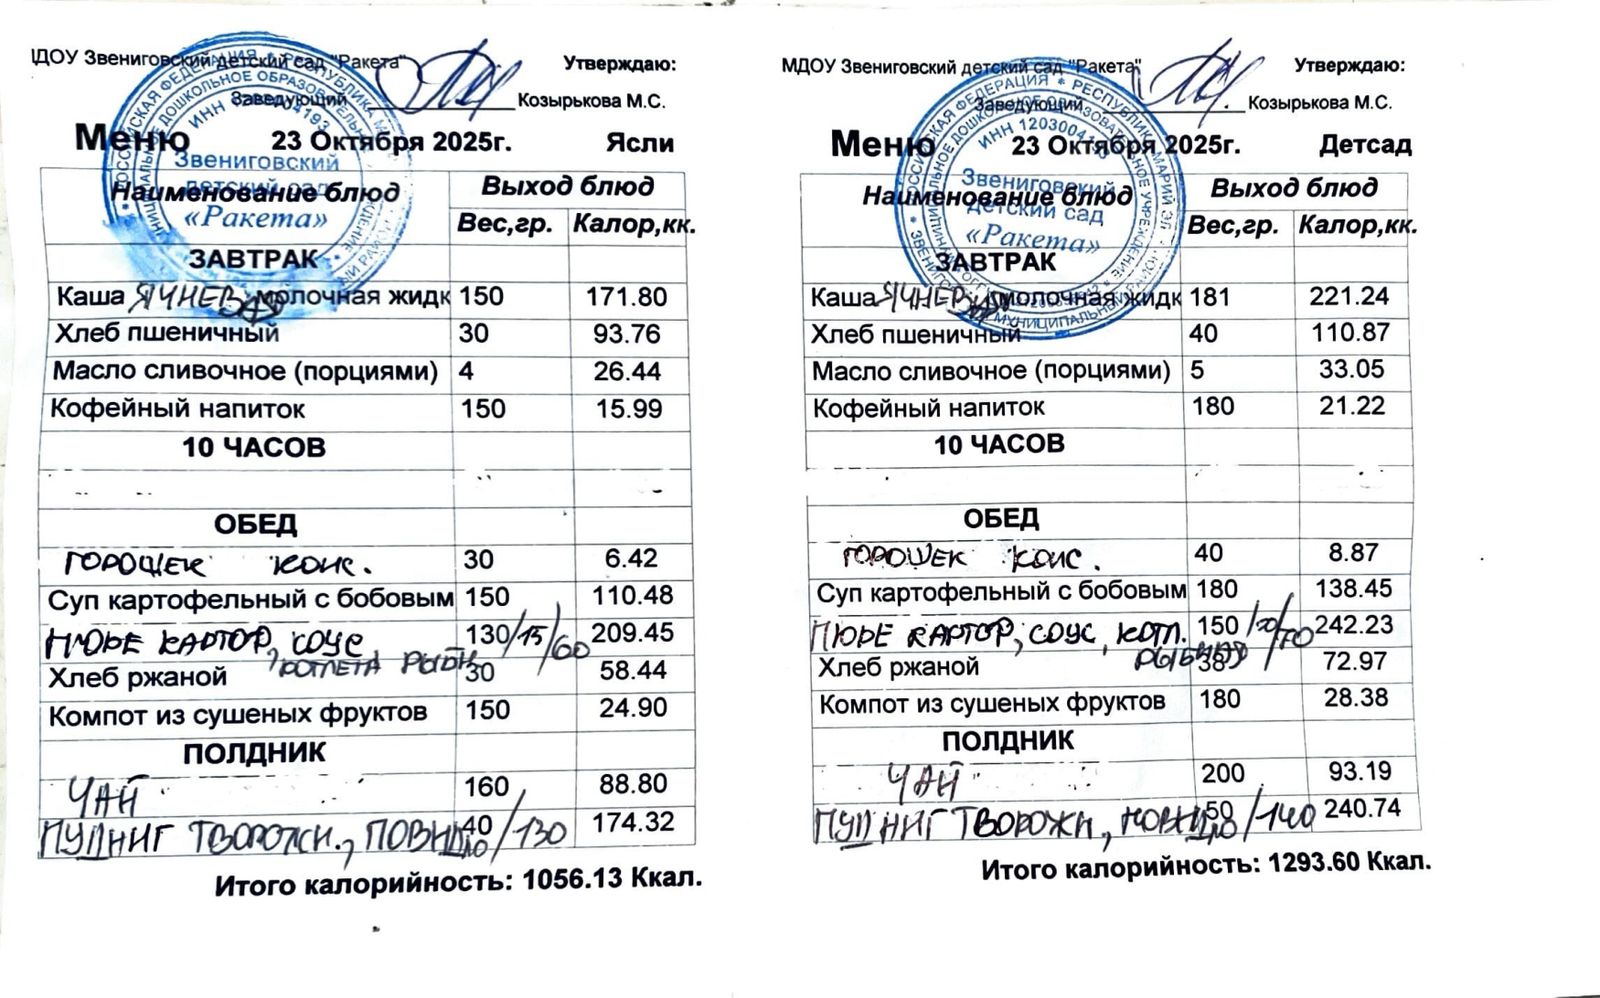 ІДОУ Звениговский детский сад "Ракета" Утверждаю:
Заведующий Козырькова М.С.
Меню 23 Октября 2025г. Ясли
Наименование блюд Выход блюд
Вес,гр. Калор,кк.
ЗАВТРАК
Каша ЯЧНЕВАЯ молочная жидк 150 171.80
Хлеб пшеничный 30 93.76
Масло сливочное (порциями) 4 26.44
Кофейный напиток 150 15.99
10 ЧАСОВ
ОБЕД
ГОРОШЕК КОНС. 30 6.42
Суп картофельный с бобовым 150 110.48
ПЮРЕ КАРТОФ, СОУС 130/15/60 209.45
, КОТЛЕТА РЫБН
Хлеб ржаной 30 58.44
Компот из сушеных фруктов 150 24.90
ПОЛДНИК
ЧАЙ 160 88.80
ПУДНИГ ТВОРОЖН., ПОВИДЛО 40/130 174.32
Итого калорийность: 1056.13 Ккал.
Звениговский
детский сад
«Ракета»
МДОУ Звениговский детский сад "Ракета" Утверждаю:
Заведующий Козырькова М.С.
Меню 23 Октября 2025г. Детсад
Наименование блюд Выход блюд
Вес,гр. Калор,кк.
ЗАВТРАК
Каша ЯЧНЕВАЯ молочная жидк 181 221.24
Хлеб пшеничный 40 110.87
Масло сливочное (порциями) 5 33.05
Кофейный напиток 180 21.22
10 ЧАСОВ
ОБЕД
ГОРОШЕК КОНС. 40 8.87
Суп картофельный с бобовым 180 138.45
ПЮРЕ КАРТОФ, СОУС, КОТЛ. 150/20/70 242.23
РЫБНАЯ
Хлеб ржаной 38 72.97
Компот из сушеных фруктов 180 28.38
ПОЛДНИК
ЧАЙ 200 93.19
ПУДНИГ ТВОРОЖН, ПОВИДЛО 50/140 240.74
Итого калорийность: 1293.60 Ккал.
Звениговский
детский сад
«Ракета»